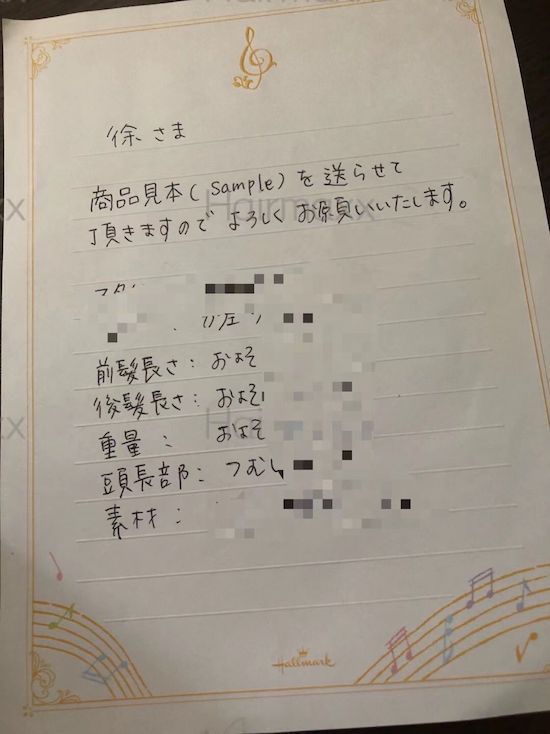 徐さま
商品見本(Sample)を送らせて
頂きますのでよろしくお願いいたします。
前髪長さ：およそ
後髪長さ：およそ
重量：およそ
頭長部：つむじ
素材：
Hallmark
Hairmaxx